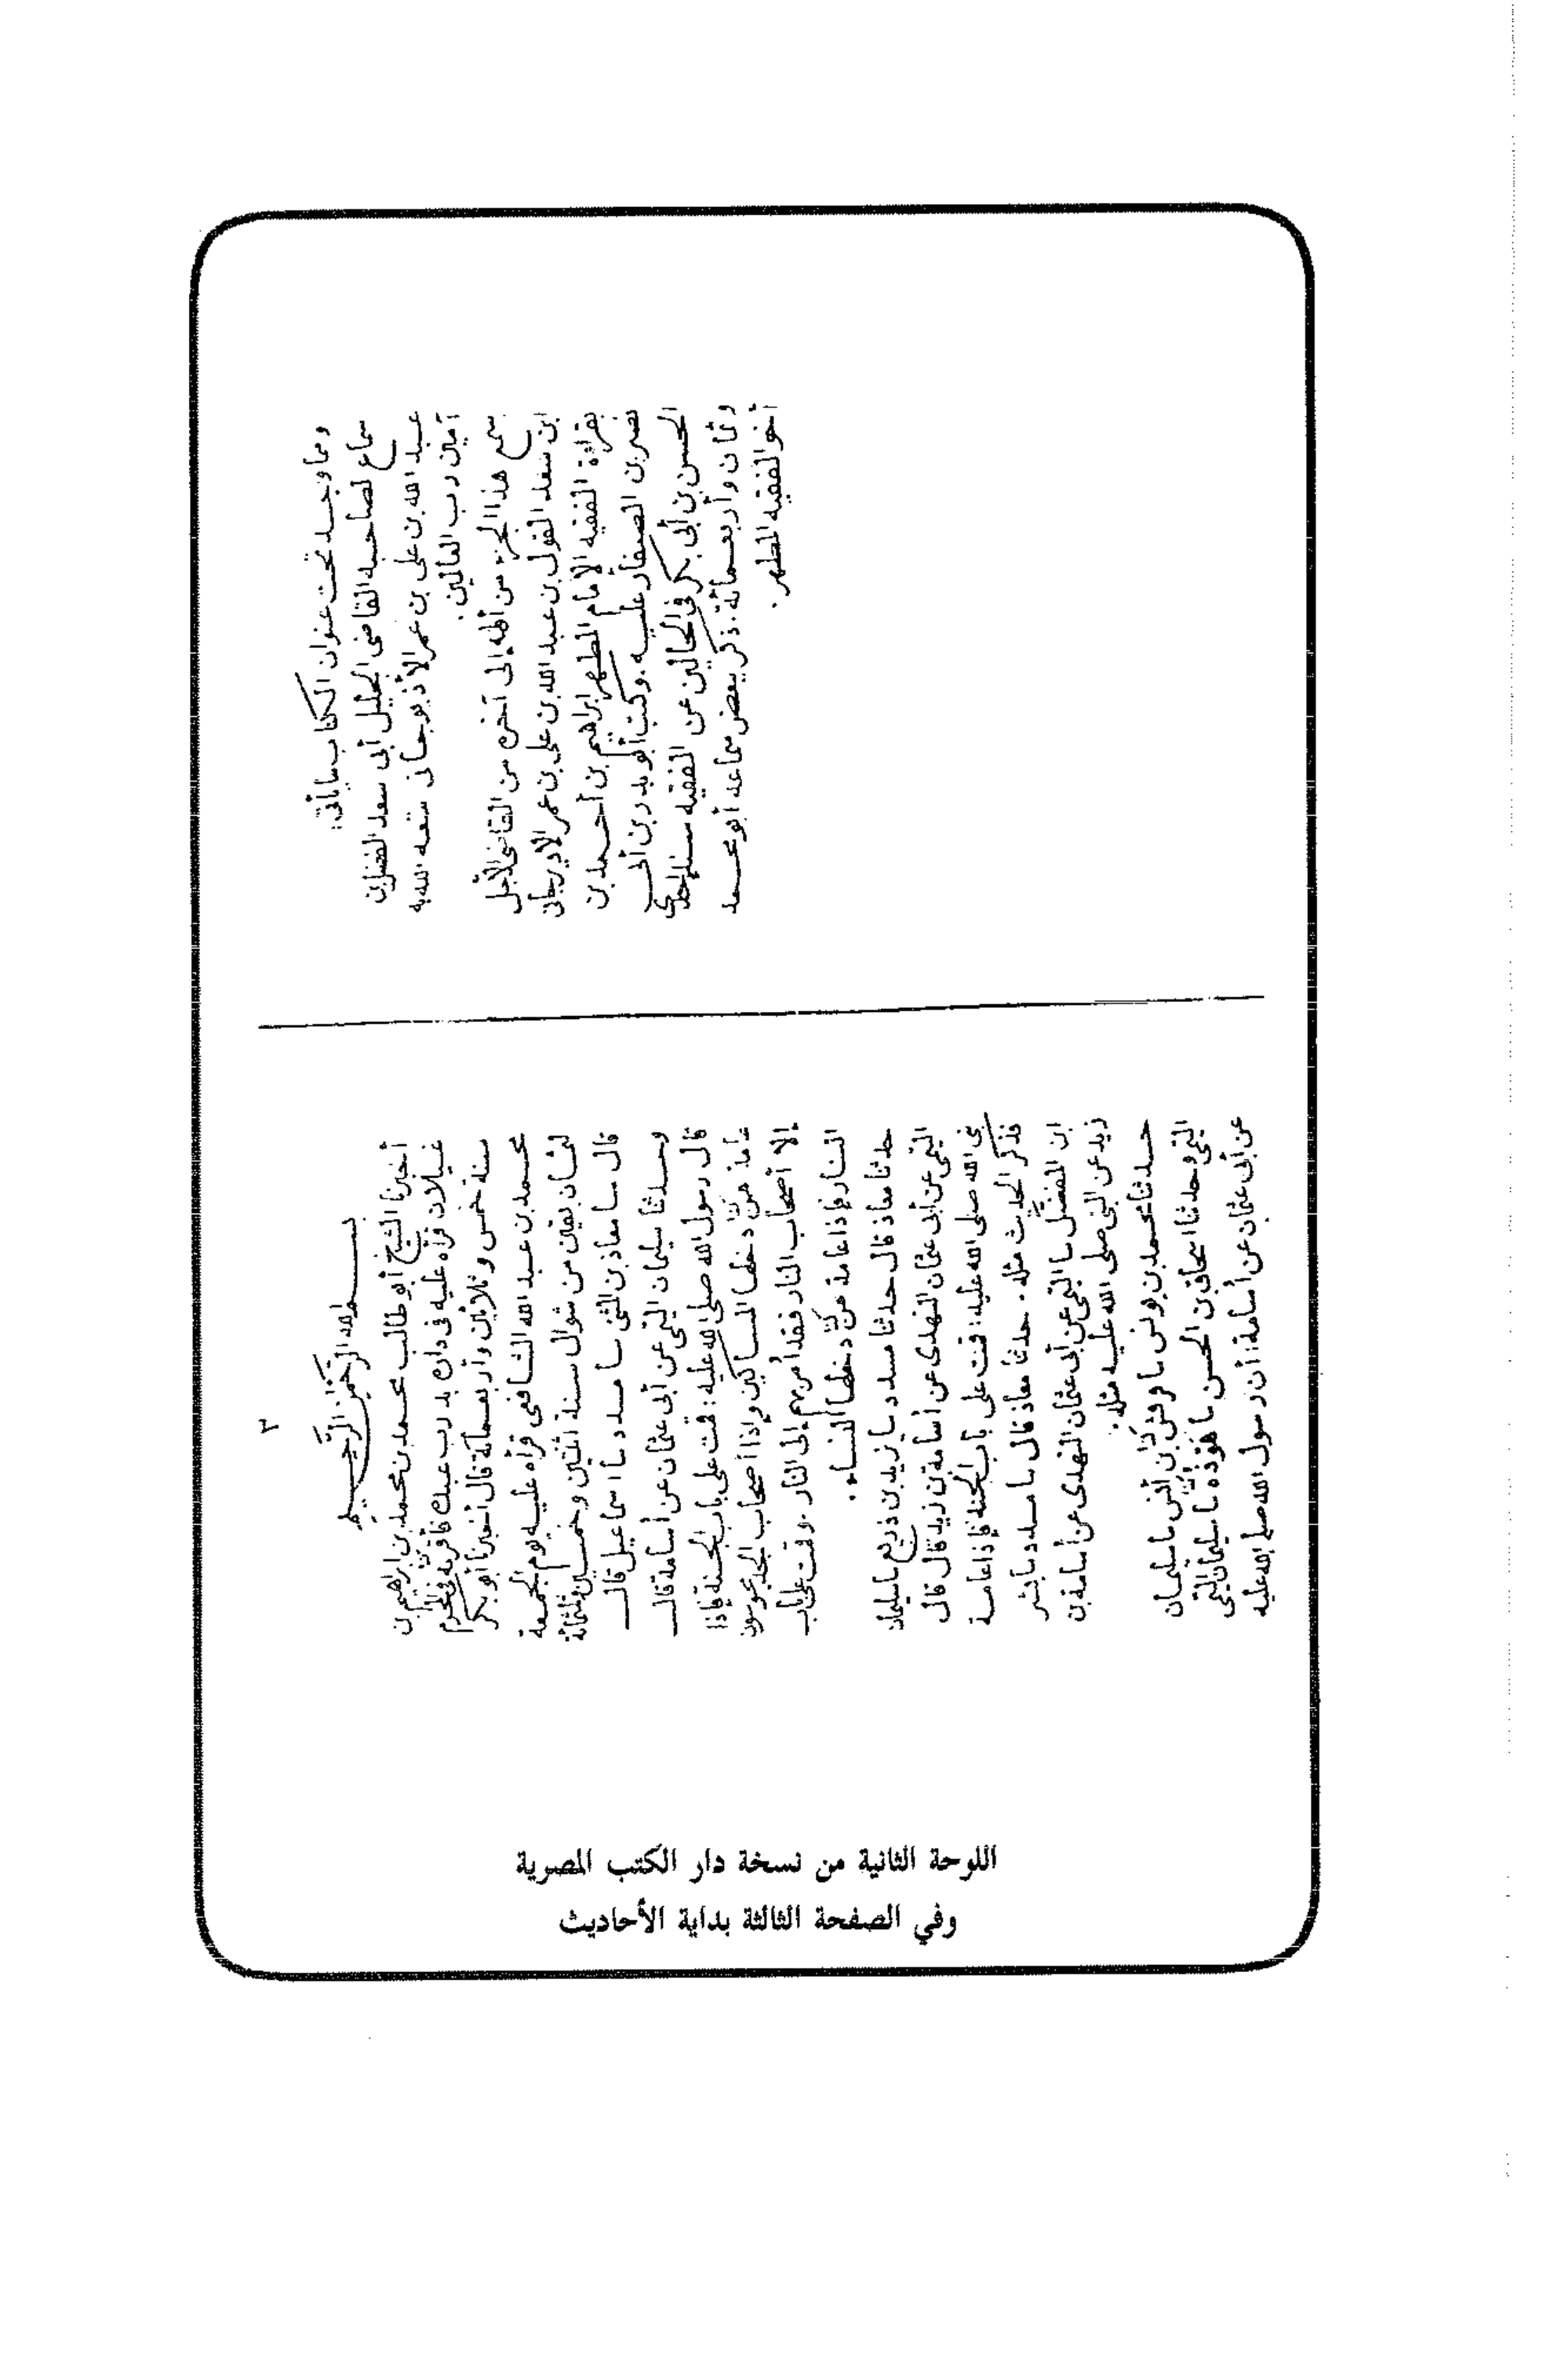 ومما وجد تحت عنوان الكتاب ما يأتى:
سماع لصاحبه القاضى الجليل أبى سعد الفضل بن
عبد الله بن على بن عمر الأذيوجانى متعه الله به
آمين رب العالمين.
سمع هذا الجزء من أوله إلى آخره من القاضى الأجل
ابن سعد القول بن عبد الله بن على بن عمر الأديرجانى
بقراءة الفقيه الإمام المطهر إبراهيم بن أحمد بن
نصر بن الصفار عليه. وكتب أبو بدر بن أبى
الحسن بن أبى بكر فى الحالين عن الفقيه سنة إحدى
وثمان وأربعمائة. ذكر بعض سماعه أبو محمد
أخو الفقيه المطهر.
٣
بسم الله الرحمن الرحيم
أخبرنا الشيخ أبو طالب محمد بن محمد بن إبراهيم بن
غيلان قرأه عليه فى داره بدرب عبدة فأقر به فى محرم
سنة خمس وثلاثين وأربعمائة قال أخبرنا أبو بكر
محمد بن عبد الله الشافعى قرأه عليه يوم الجمعة
لثمان بقين من شوال سنة اثنتين وخمسين وثلثمائة
قال سا معاذ بن المثنى سا مسدد سا اسماعيل قال
وحدثنا سليمان التيمى عن أبى عثمان عن أسامة قال
قال رسول الله صلى الله عليه: قمت على باب الجنة فإذا
عامة من دخلها المساكين وإذا أصحاب الجد محبوسون
إلا أصحاب النار فقد أمر بهم إلى النار. وقمت على باب
النار فإذا عامة من دخلها النساء.
حدثنا معاذ قال حدثنا مسدد سا يزيد بن زريع سا سليمان
التيمى عن أبى عثمان النهدى عن أسامة بن زيد قال قال
نبى الله صلى الله عليه: قمت على باب الجنة فإذا عامة
فذكر الحديث مثله. حدثنا معاذ قال سا مسدد سا بشر
ابن المفضل سا التيمى عن أبى عثمان النهدى عن أسامة بن
زيد عن النبى صلى الله عليه مثله.
حدثنا محمد بن يونس سا قريش بن أنس سا سليمان
التيمى وحدثنا اسحاق بن الحسن سا هوذه سا سليمان التيمى
عن أبى عثمان عن أسامة: أن رسول الله صلى الله عليه
اللوحة الثانية من نسخة دار الكتب المصرية
وفي الصفحة الثالثة بداية الأحاديث